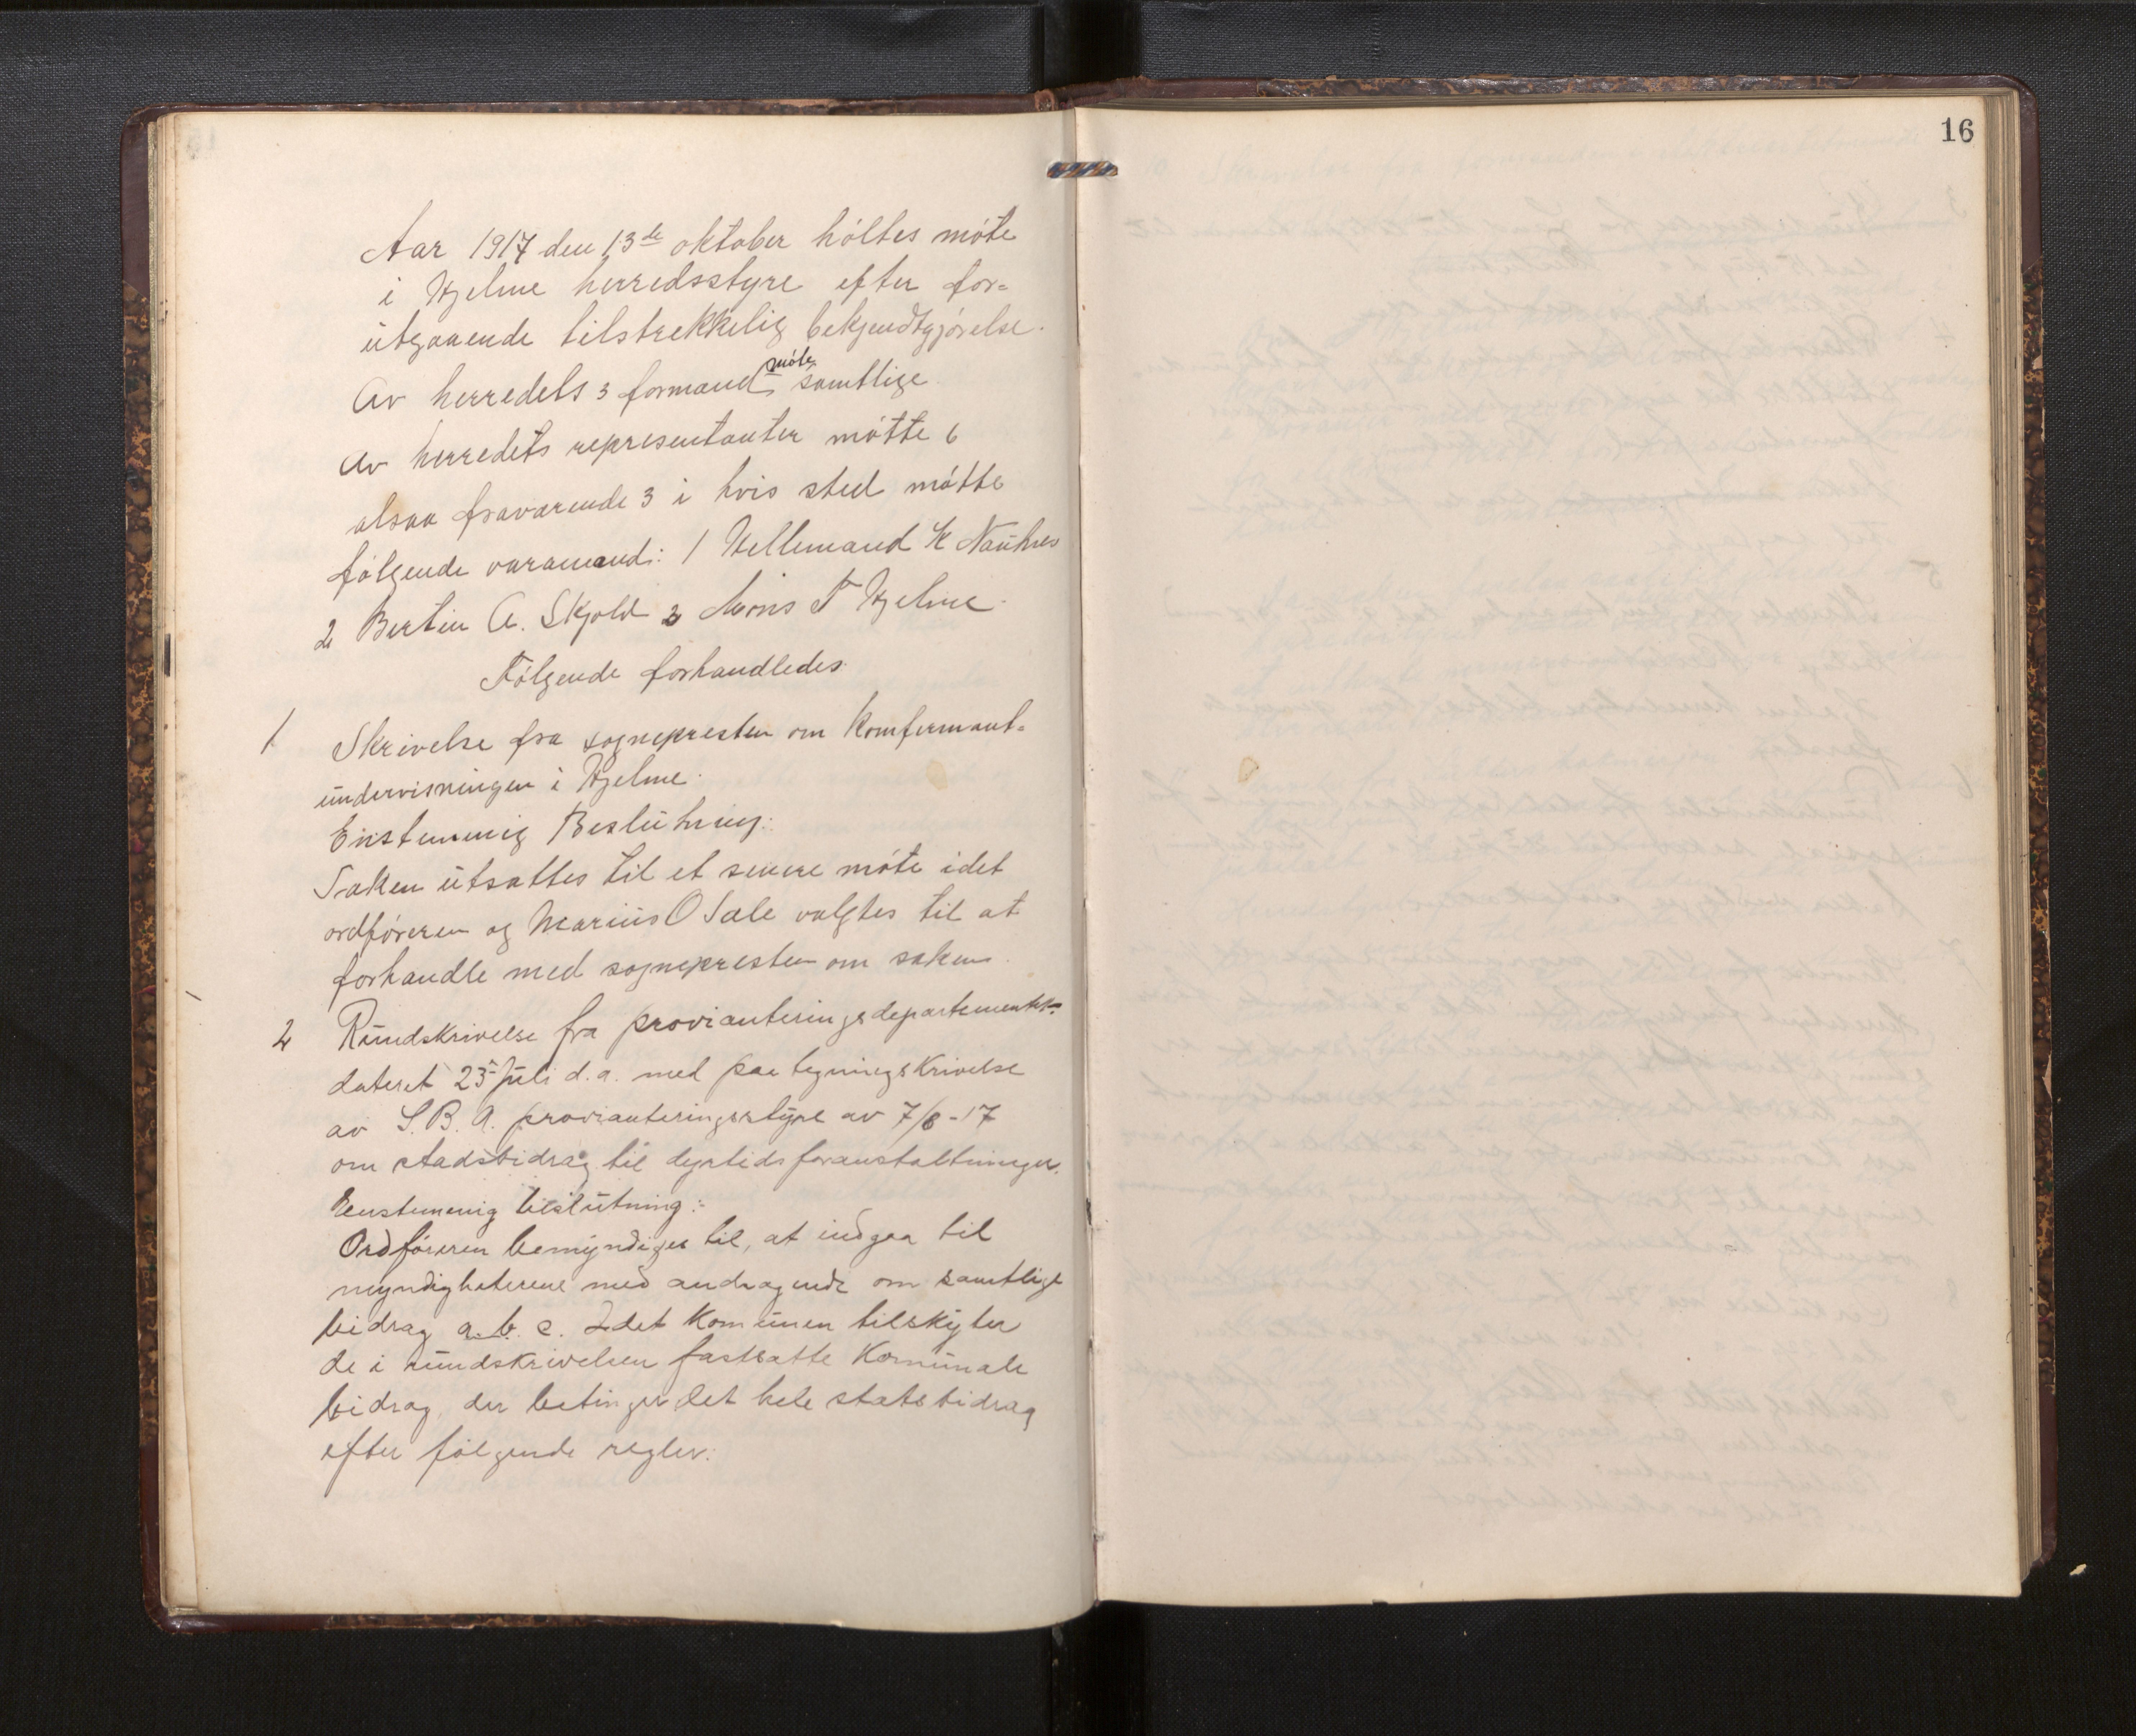 16
Aar 1917 den 13de oktober hóltes móte
i Hjelme herredsstyre efter for=
utgaaende tilstrekkelig bekjendtgjórelse.
Av herredets 3 formænd móte samtlige.
Av herredets representanter mótte 6
alsaa fraværende 3 i hvis sted mótte
fólgende varamænd: 1 Hellemand H Nautnes
2 Bertin A. Skjold 3 Mons T Hjelme.
Fólgende forhandledes
1 Skrivelse fra sognepresten om Komfermant=
undervisningen i Hjelme.
Enstemmig Beslutning:
Saken utsattes til et senere móte idet
ordfóreren og Marius O Sæle valgtes til at
forhandle med sognepresten om saken.
2 Rundskrivelse fra provianteringsdepartementet
dateret 25 juli d.a. med paategningskrivelse
av S.B.A. provianteringsstyre av 7/8-17
om stadsbidrag til dyrtidsforanstaltninger.
Enstemmig beslutning:
Ordfóreren bemyndiges til, at indgaa til
myndigheterene med andragende om samtlige
bidrag a. b. c. Idet Komunen tilskyter
de i rundskrivelsen fastsatte Komunale
bidrag, der betinger det hele statsbidrag
efter fólgende regler: